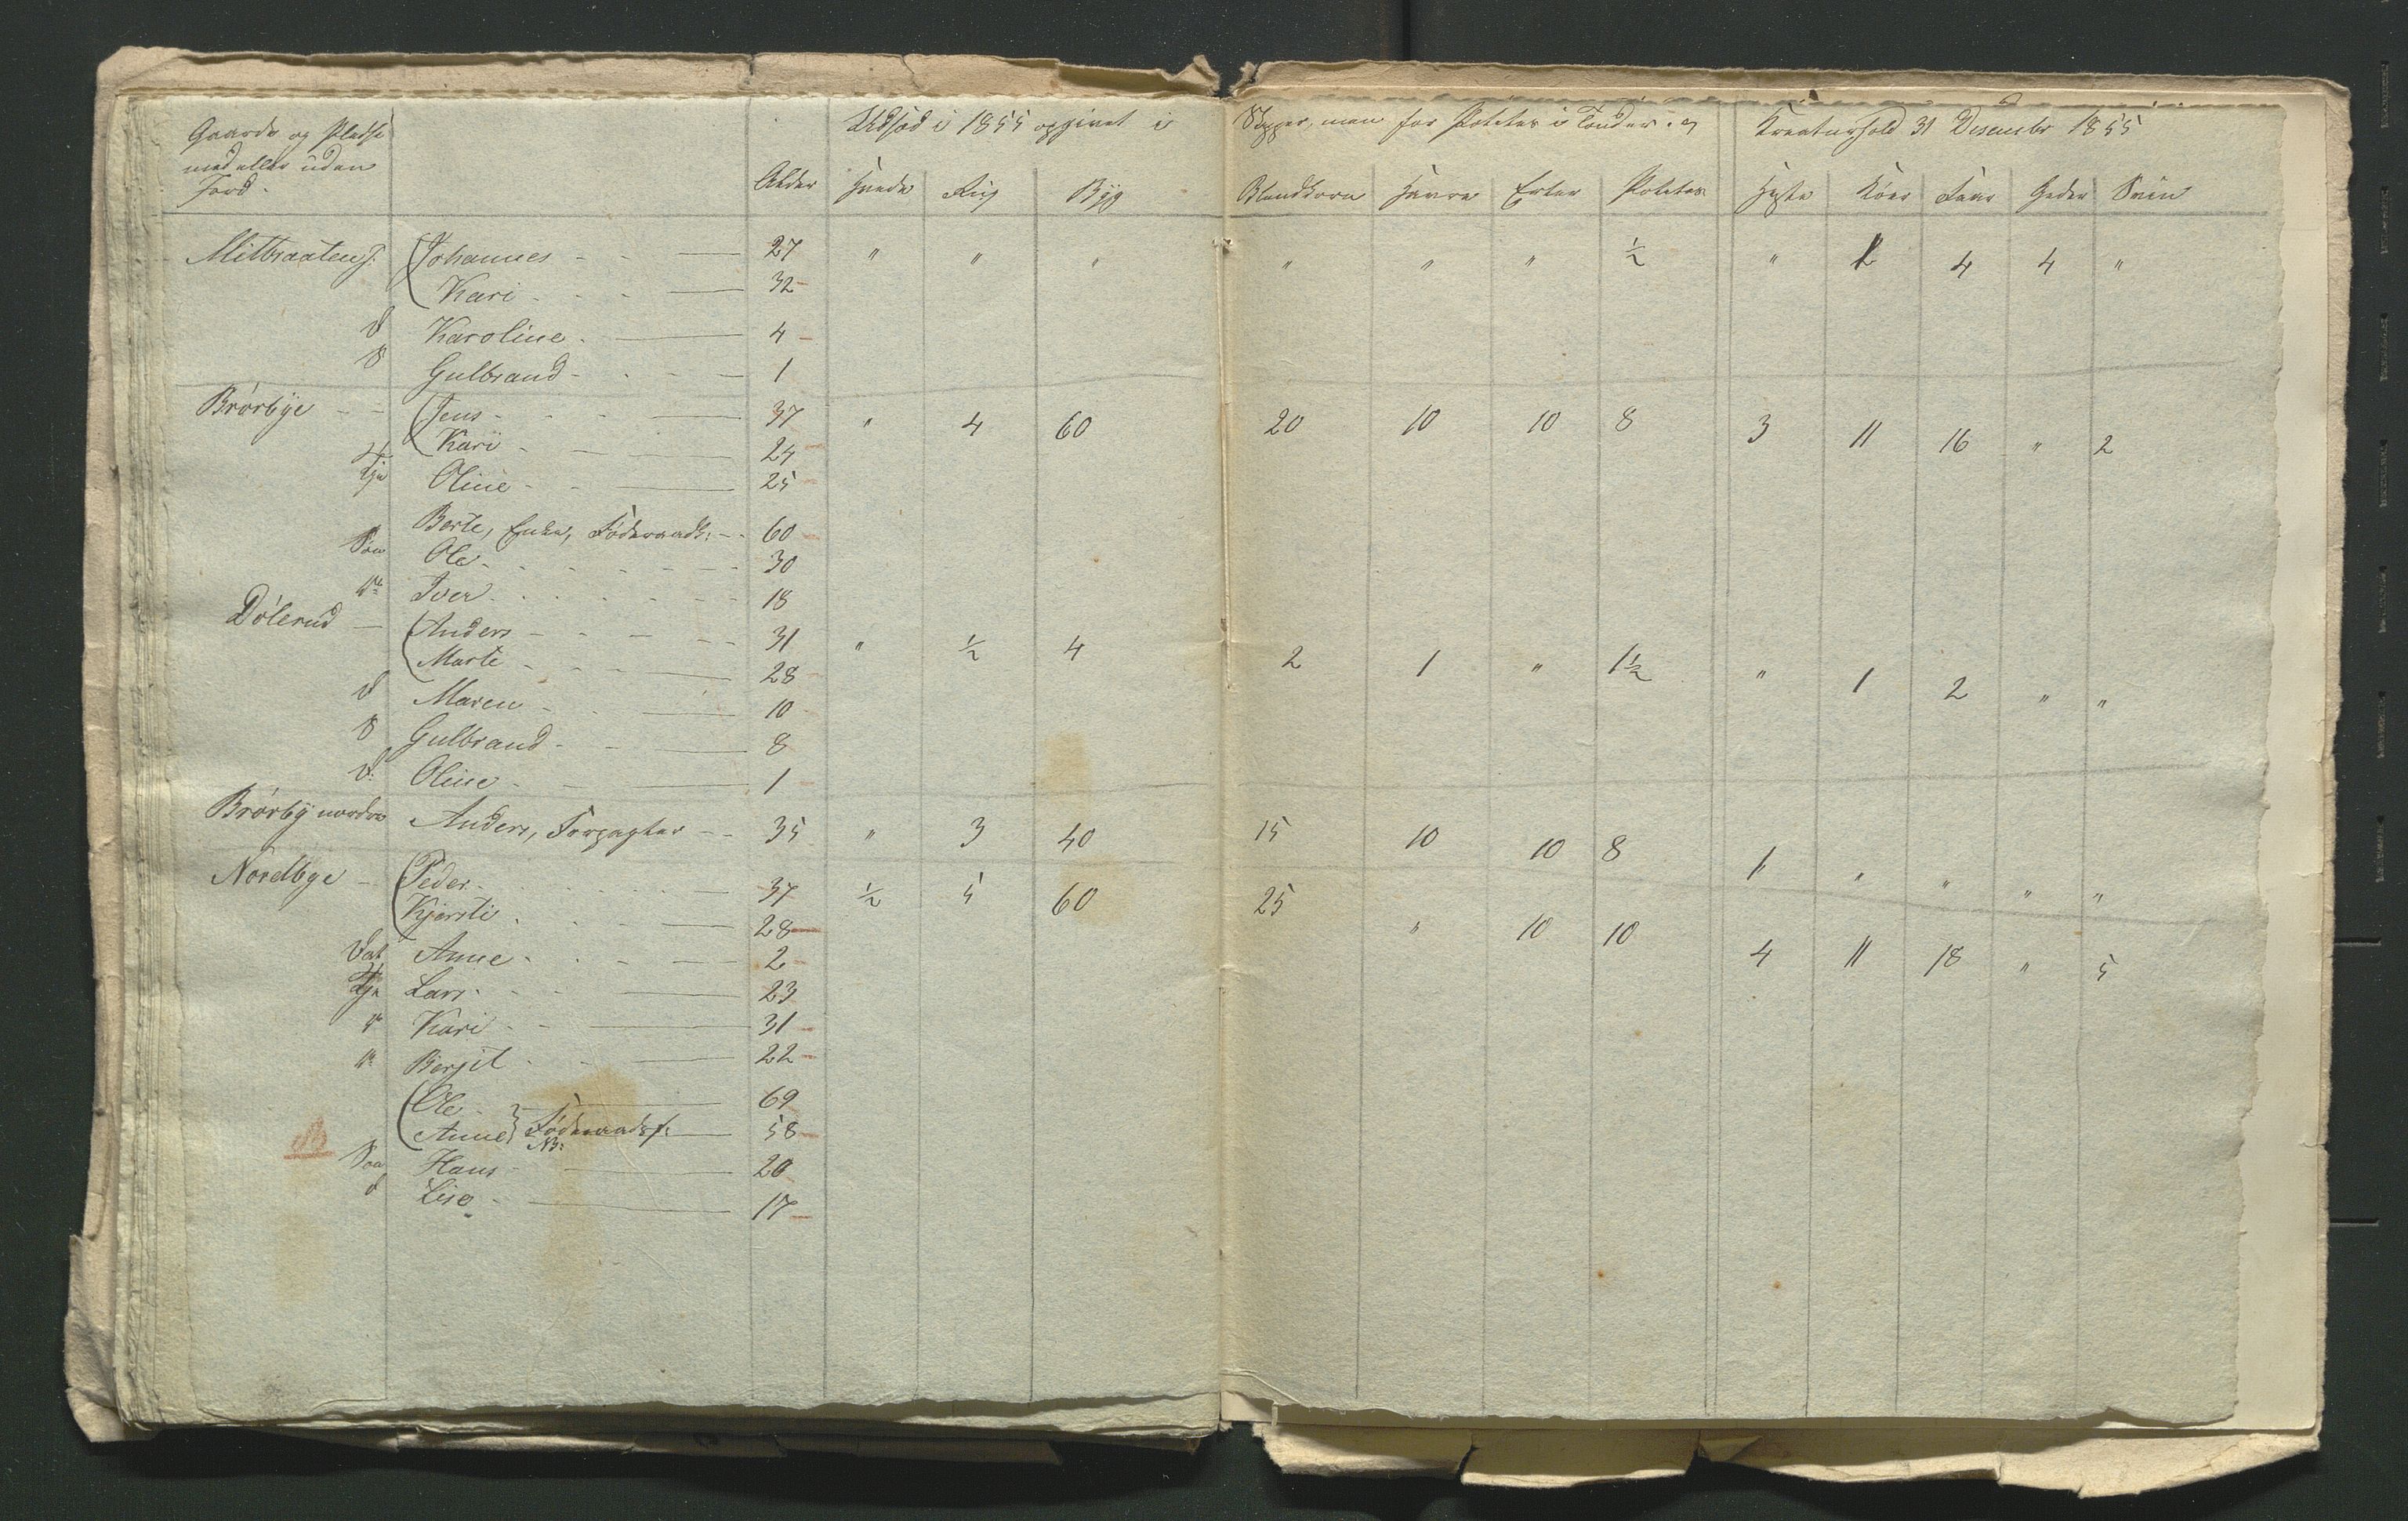 Gaarde og Pladse Udsæd i 1855 opgivet i Skjepper, men for Poteter i Tønder. og Kreaturhold 31 Desember 1855
med eller uden
Jord. Alder Hvede Rug Byg Blandkorn Havre Erter Poteter Heste Køer Faar Geder Sviin
Johannes 27 " " " " " " ½ " 2 4 4 "
Kari 32
d Karoline 4
S Gulbrand 1
Brørbye Jens 37 " 4 60 20 10 10 8 3 11 16 " 2
Kari 24
Tje Oline 25
Berte, Enke, Føderaads: 60
Søn Ole 30
Iver 18
Dølerud Anders 31 " ½ 4 2 1 " 1½ " 1 2 " "
Marte 28
d Maren 10
S Gulbrand 8
d. Oline 1
Brørby nordre Anders, Forpagter 35 " 3 40 15 10 10 8 1 " " " "
Nordbye Peder 37 ½ 5 60 25 " 10 10 4 11 18 " 5
Kjersti 28
Dat Anne 2
Tje Lars 23
" Kari 31
" Bergit 22
Ole 69
Anne } Føderaadsf: 58
NB:
Søn Hans 20
d Lise 17